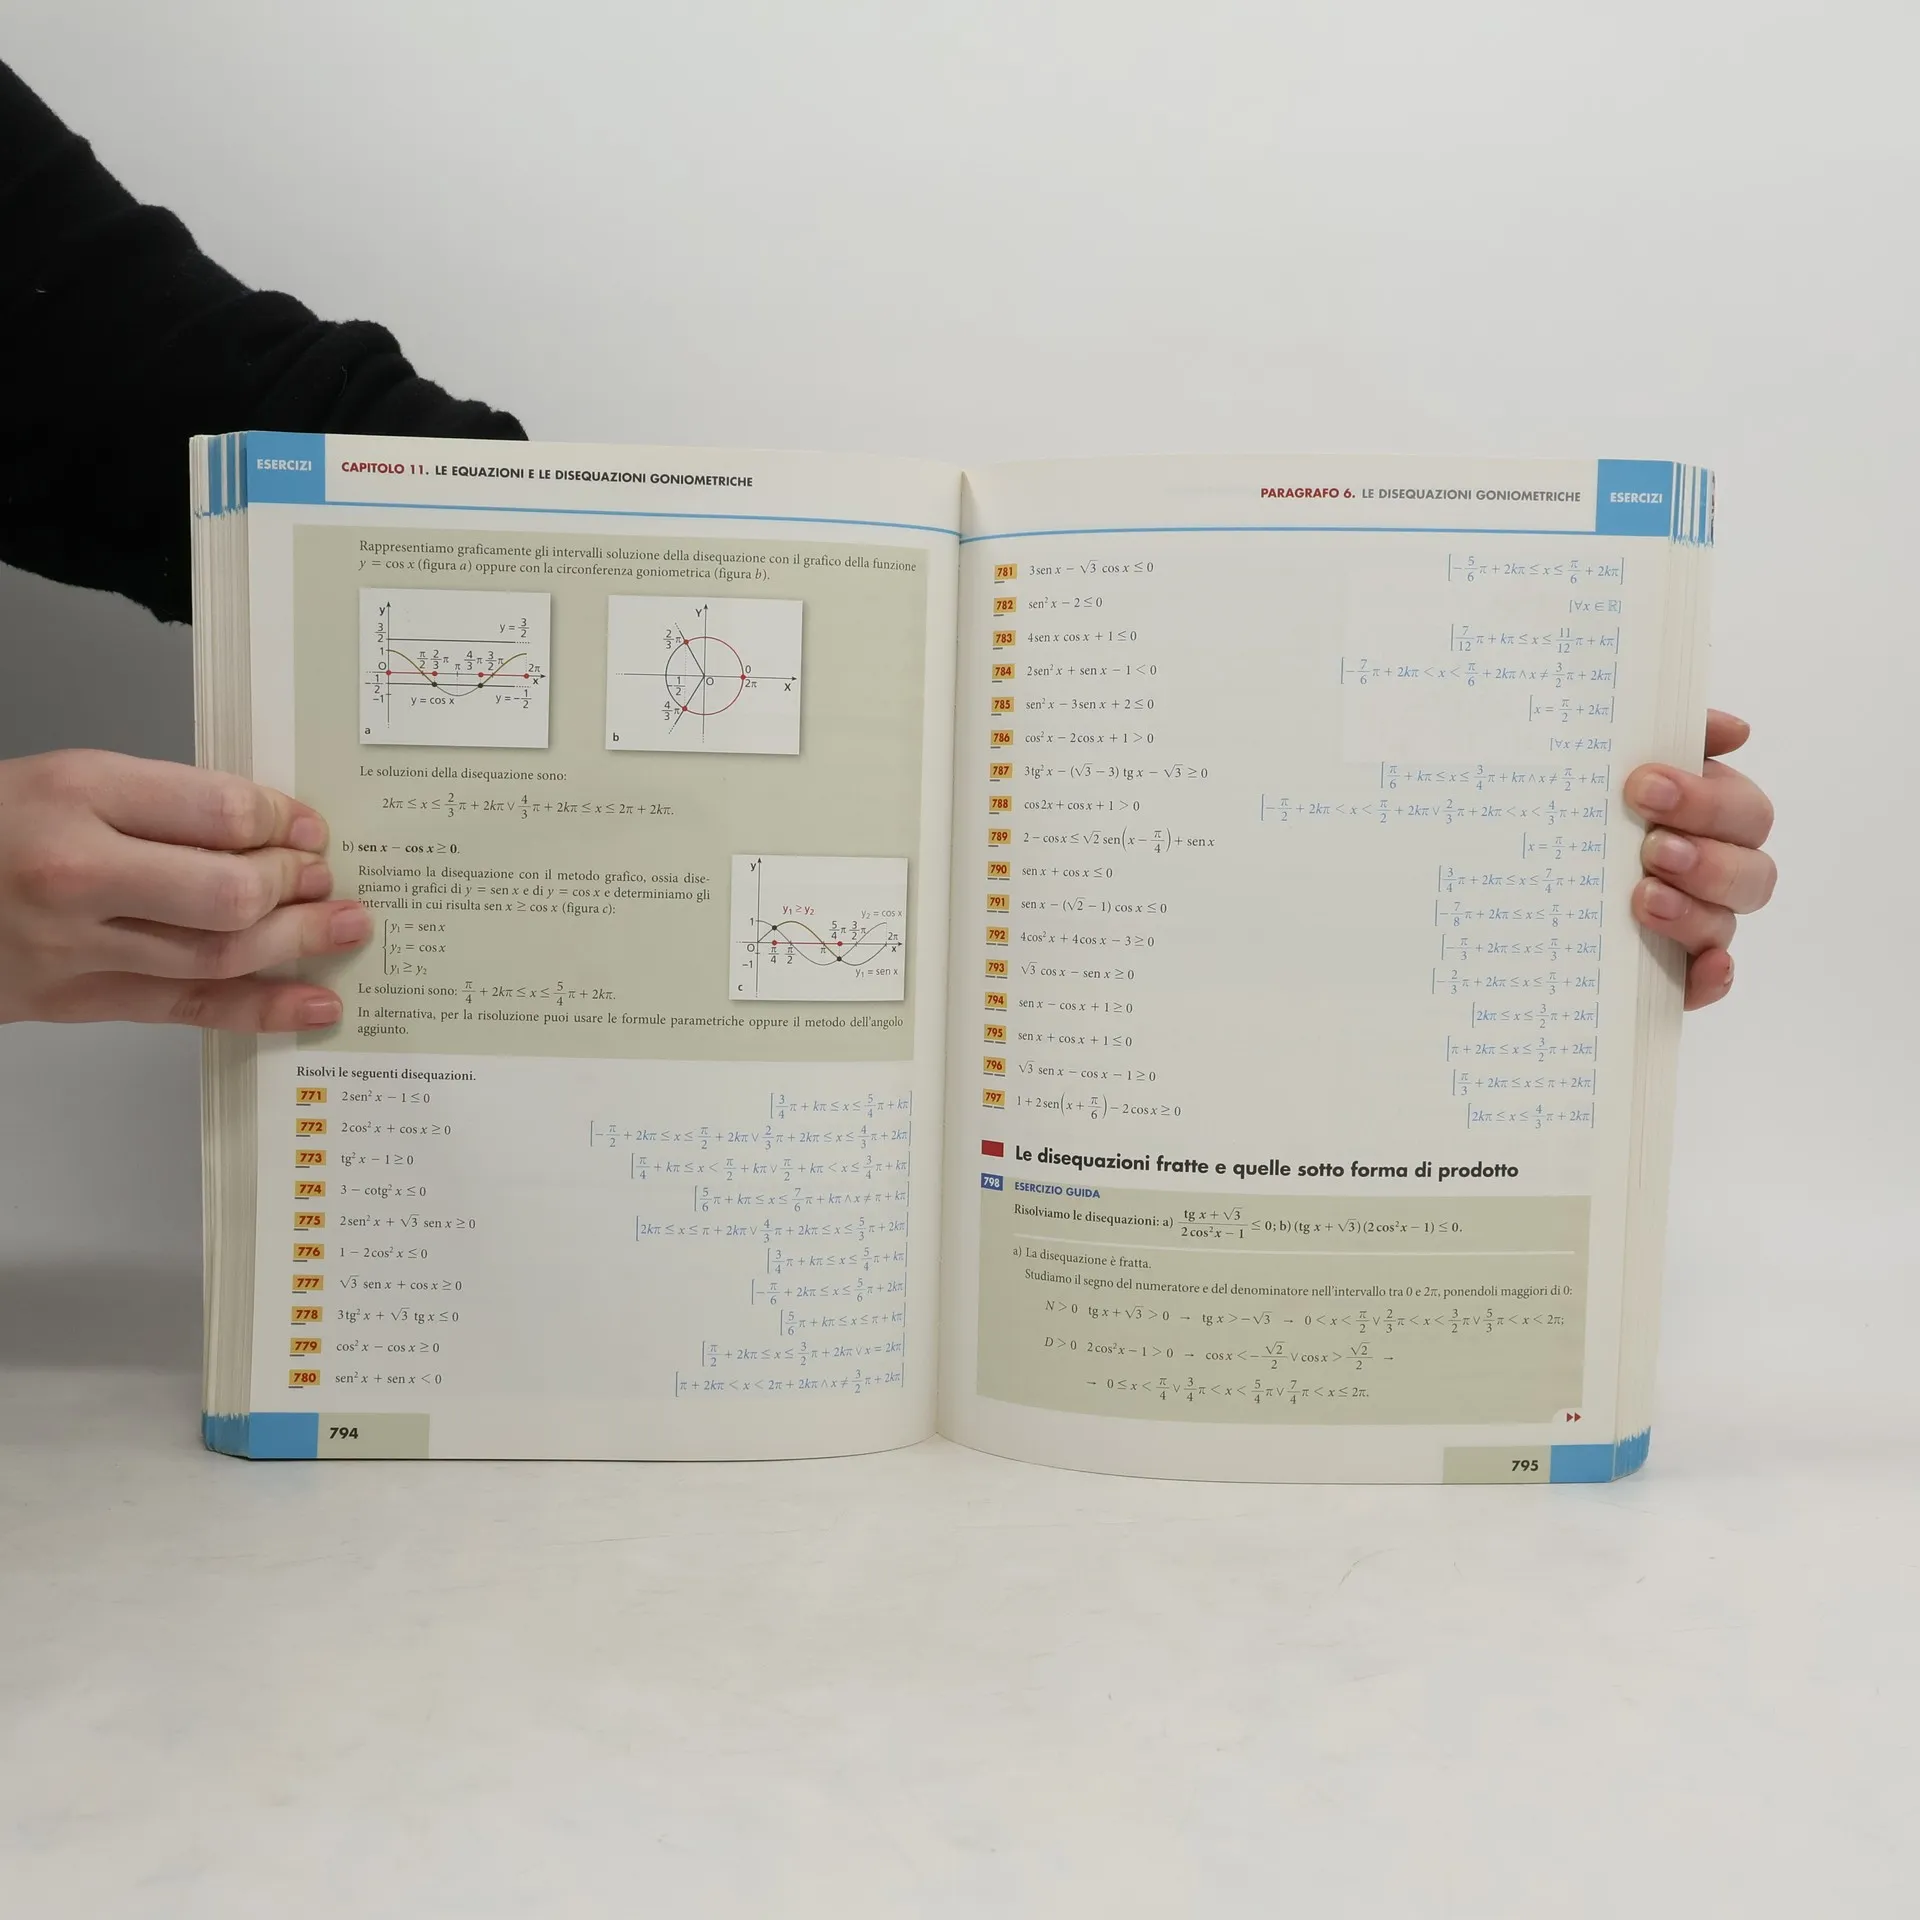 ESERCIZI
CAPITOLO 11. LE EQUAZIONI E LE DISEQUAZIONI GONIOMETRICHE
Rappresentiamo graficamente gli intervalli soluzione della disequazione con il grafico della funzione
y = cos x (figura a) oppure con la circonferenza goniometrica (figura b).
y
3/2
y = 3/2
1
π/2 2/3π π 4/3π 3/2π
O
2π
x
-1/2
-1
y = cos x
y = -1/2
a
Y
2/3π
0
-1/2
O
2π
X
4/3π
b
Le soluzioni della disequazione sono:
2kπ ≤ x ≤ 2/3π + 2kπ ∨ 4/3π + 2kπ ≤ x ≤ 2π + 2kπ.
b) sen x − cos x ≥ 0.
Risolviamo la disequazione con il metodo grafico, ossia dise-
gniamo i grafici di y = sen x e di y = cos x e determiniamo gli
intervalli in cui risulta sen x ≥ cos x (figura c):
y₁ = sen x
y₂ = cos x
y₁ ≥ y₂
Le soluzioni sono: π/4 + 2kπ ≤ x ≤ 5/4π + 2kπ.
y
y₁ ≥ y₂
y₂ = cos x
1
5/4π 3/2π
2π
O
π/4 π/2 π
x
-1
y₁ = sen x
c
In alternativa, per la risoluzione puoi usare le formule parametriche oppure il metodo dell'angolo
aggiunto.
Risolvi le seguenti disequazioni.
771 2sen² x − 1 ≤ 0 [3/4π + kπ ≤ x ≤ 5/4π + kπ]
772 2cos² x + cos x ≥ 0 [−π/2 + 2kπ ≤ x ≤ π/2 + 2kπ ∨ 2/3π + 2kπ ≤ x ≤ 4/3π + 2kπ]
773 tg² x − 1 ≥ 0 [π/4 + kπ ≤ x < π/2 + kπ ∨ π/2 + kπ < x ≤ 3/4π + kπ]
774 3 − cotg² x ≤ 0 [5/6π + kπ ≤ x ≤ 7/6π + kπ ∧ x ≠ π + kπ]
775 2sen² x + √3 sen x ≥ 0 [2kπ ≤ x ≤ π + 2kπ ∨ 4/3π + 2kπ ≤ x ≤ 5/3π + 2kπ]
776 1 − 2cos² x ≤ 0 [3/4π + kπ ≤ x ≤ 5/4π + kπ]
777 √3 sen x + cos x ≥ 0 [−π/6 + 2kπ ≤ x ≤ 5/6π + 2kπ]
778 3tg² x + √3 tg x ≤ 0 [5/6π + kπ ≤ x ≤ π + kπ]
779 cos² x − cos x ≥ 0 [π/2 + 2kπ ≤ x ≤ 3/2π + 2kπ ∨ x = 2kπ]
780 sen² x + sen x < 0 [π + 2kπ < x < 2π + 2kπ ∧ x ≠ 3/2π + 2kπ]
794
PARAGRAFO 6. LE DISEQUAZIONI GONIOMETRICHE
ESERCIZI
781 3sen x − √3 cos x ≤ 0 [−5/6π + 2kπ ≤ x ≤ π/6 + 2kπ]
782 sen² x − 2 ≤ 0 [∀x ∈ ℝ]
783 4sen x cos x + 1 ≤ 0 [7/12π + kπ ≤ x ≤ 11/12π + kπ]
784 2sen² x + sen x − 1 < 0 [−7/6π + 2kπ < x < π/6 + 2kπ ∧ x ≠ 3/2π + 2kπ]
785 sen² x − 3sen x + 2 ≤ 0 [x = π/2 + 2kπ]
786 cos² x − 2cos x + 1 > 0 [∀x ≠ 2kπ]
787 3tg² x − (√3 − 3) tg x − √3 ≥ 0 [π/6 + kπ ≤ x ≤ 3/4π + kπ ∧ x ≠ π/2 + kπ]
788 cos 2x + cos x + 1 > 0 [−π/2 + 2kπ < x < π/2 + 2kπ ∨ 2/3π + 2kπ < x < 4/3π + 2kπ]
789 2 − cos x ≤ √2 sen(x − π/4) + sen x [x = π/2 + 2kπ]
790 sen x + cos x ≤ 0 [3/4π + 2kπ ≤ x ≤ 7/4π + 2kπ]
791 sen x − (√2 − 1) cos x ≤ 0 [−7/8π + 2kπ ≤ x ≤ π/8 + 2kπ]
792 4cos² x + 4cos x − 3 ≥ 0 [−π/3 + 2kπ ≤ x ≤ π/3 + 2kπ]
793 √3 cos x − sen x ≥ 0 [−2/3π + 2kπ ≤ x ≤ π/3 + 2kπ]
794 sen x − cos x + 1 ≥ 0 [2kπ ≤ x ≤ 3/2π + 2kπ]
795 sen x + cos x + 1 ≤ 0 [π + 2kπ ≤ x ≤ 3/2π + 2kπ]
796 √3 sen x − cos x − 1 ≥ 0 [π/3 + 2kπ ≤ x ≤ π + 2kπ]
797 1 + 2sen(x + π/6) − 2cos x ≥ 0 [2kπ ≤ x ≤ 4/3π + 2kπ]
Le disequazioni fratte e quelle sotto forma di prodotto
798 ESERCIZIO GUIDA
Risolviamo le disequazioni: a) (tg x + √3)/(2cos² x − 1) ≤ 0; b) (tg x + √3)(2cos² x − 1) ≤ 0.
a) La disequazione è fratta.
Studiamo il segno del numeratore e del denominatore nell'intervallo tra 0 e 2π, ponendoli maggiori di 0:
N > 0 tg x + √3 > 0 → tg x > −√3 → 0 < x < π/2 ∨ 2/3π < x < 3/2π ∨ 5/3π < x < 2π;
D > 0 2cos² x − 1 > 0 → cos x < −√2/2 ∨ cos x > √2/2 →
→ 0 ≤ x < π/4 ∨ 3/4π < x < 5/4π ∨ 7/4π < x ≤ 2π.
795